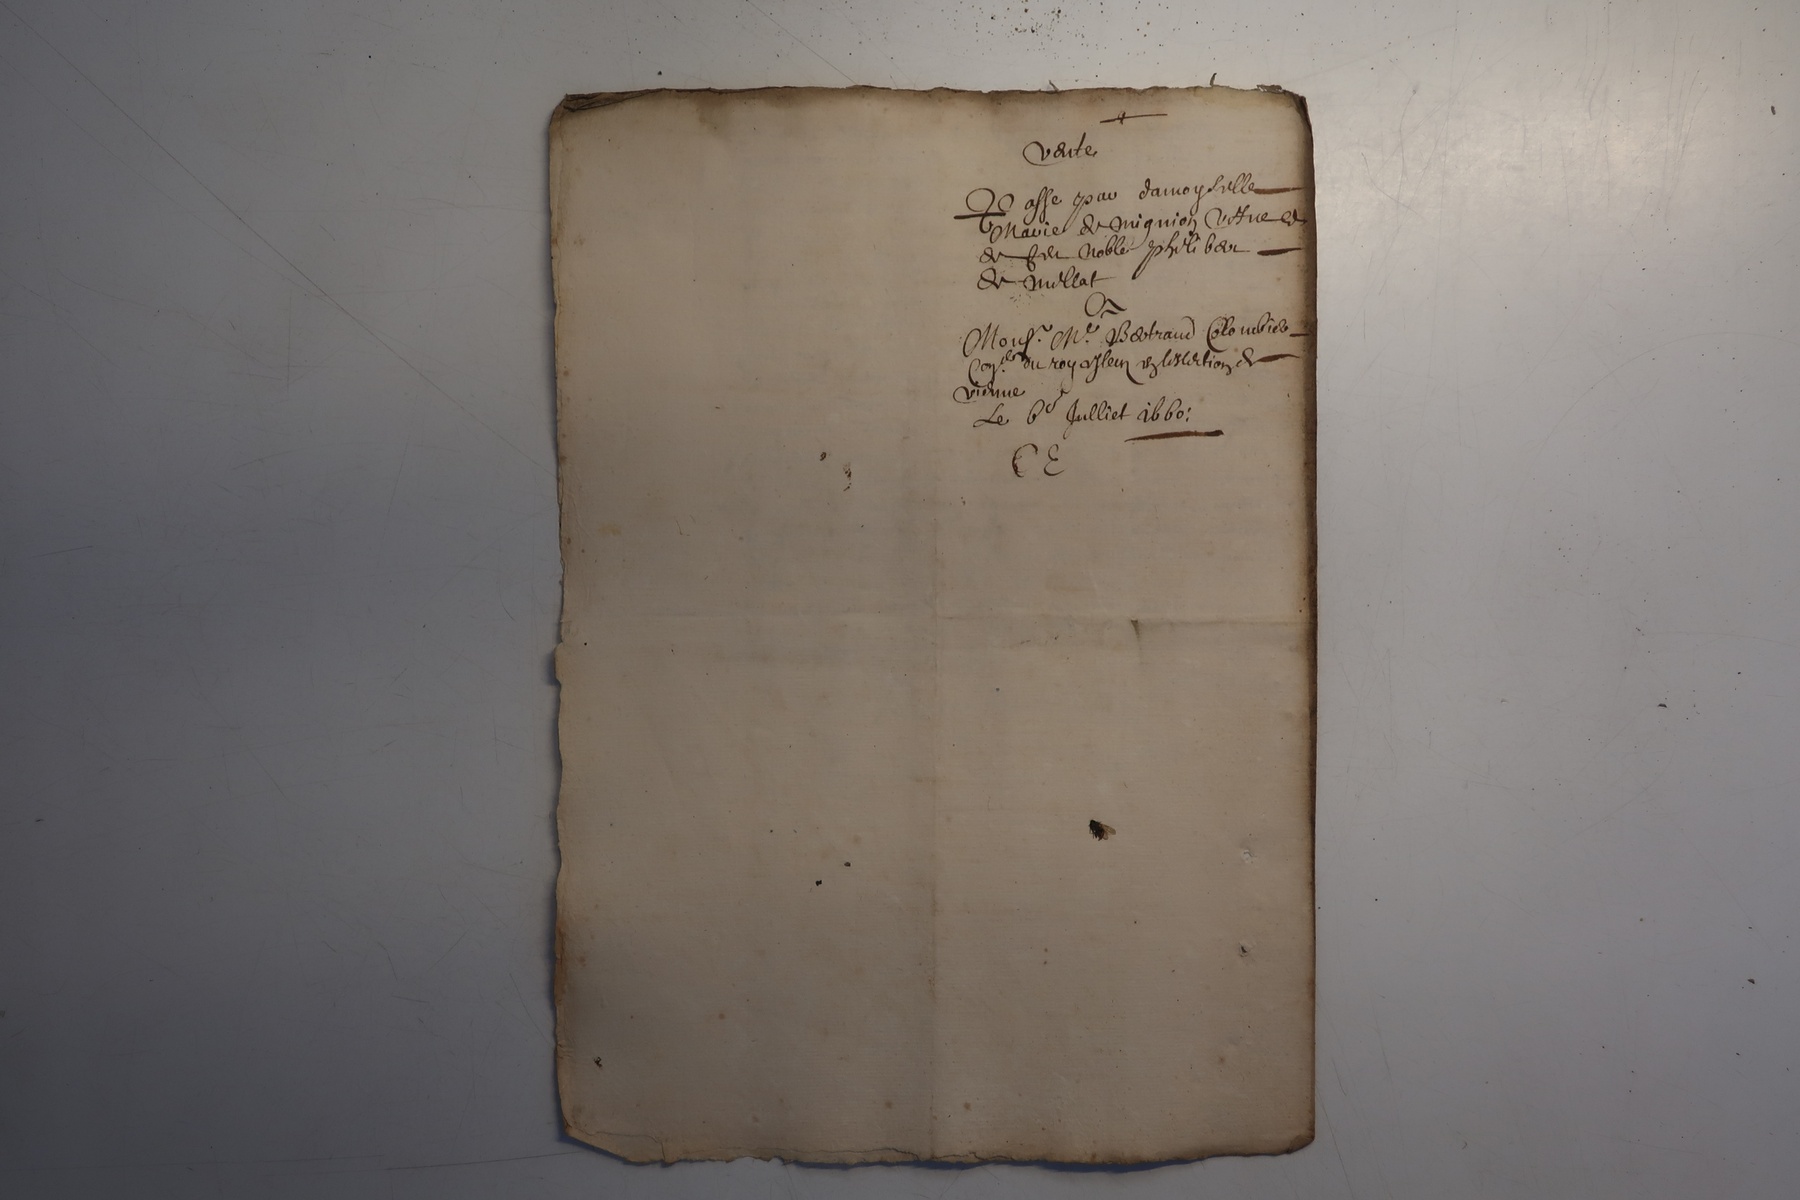 vente
Passe par damoyselle
Marie de Mignion vefve
de feu Noble philiber
de Millat
A
Monsr. Me. Bertrand Colombier
Coner. du roy esleu en lellection de
vienne
Le 6e Julliet 1660:
C E